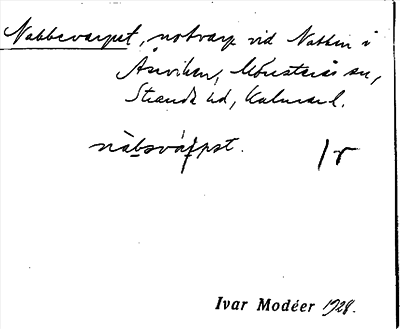 Nabbevarpet, notvarp vid Nabben i
Åsviken, Mönsterås sn,
Stranda hd, Kalmar l.
nàbsvárpst. 1r
Ivar Modéer 1928.